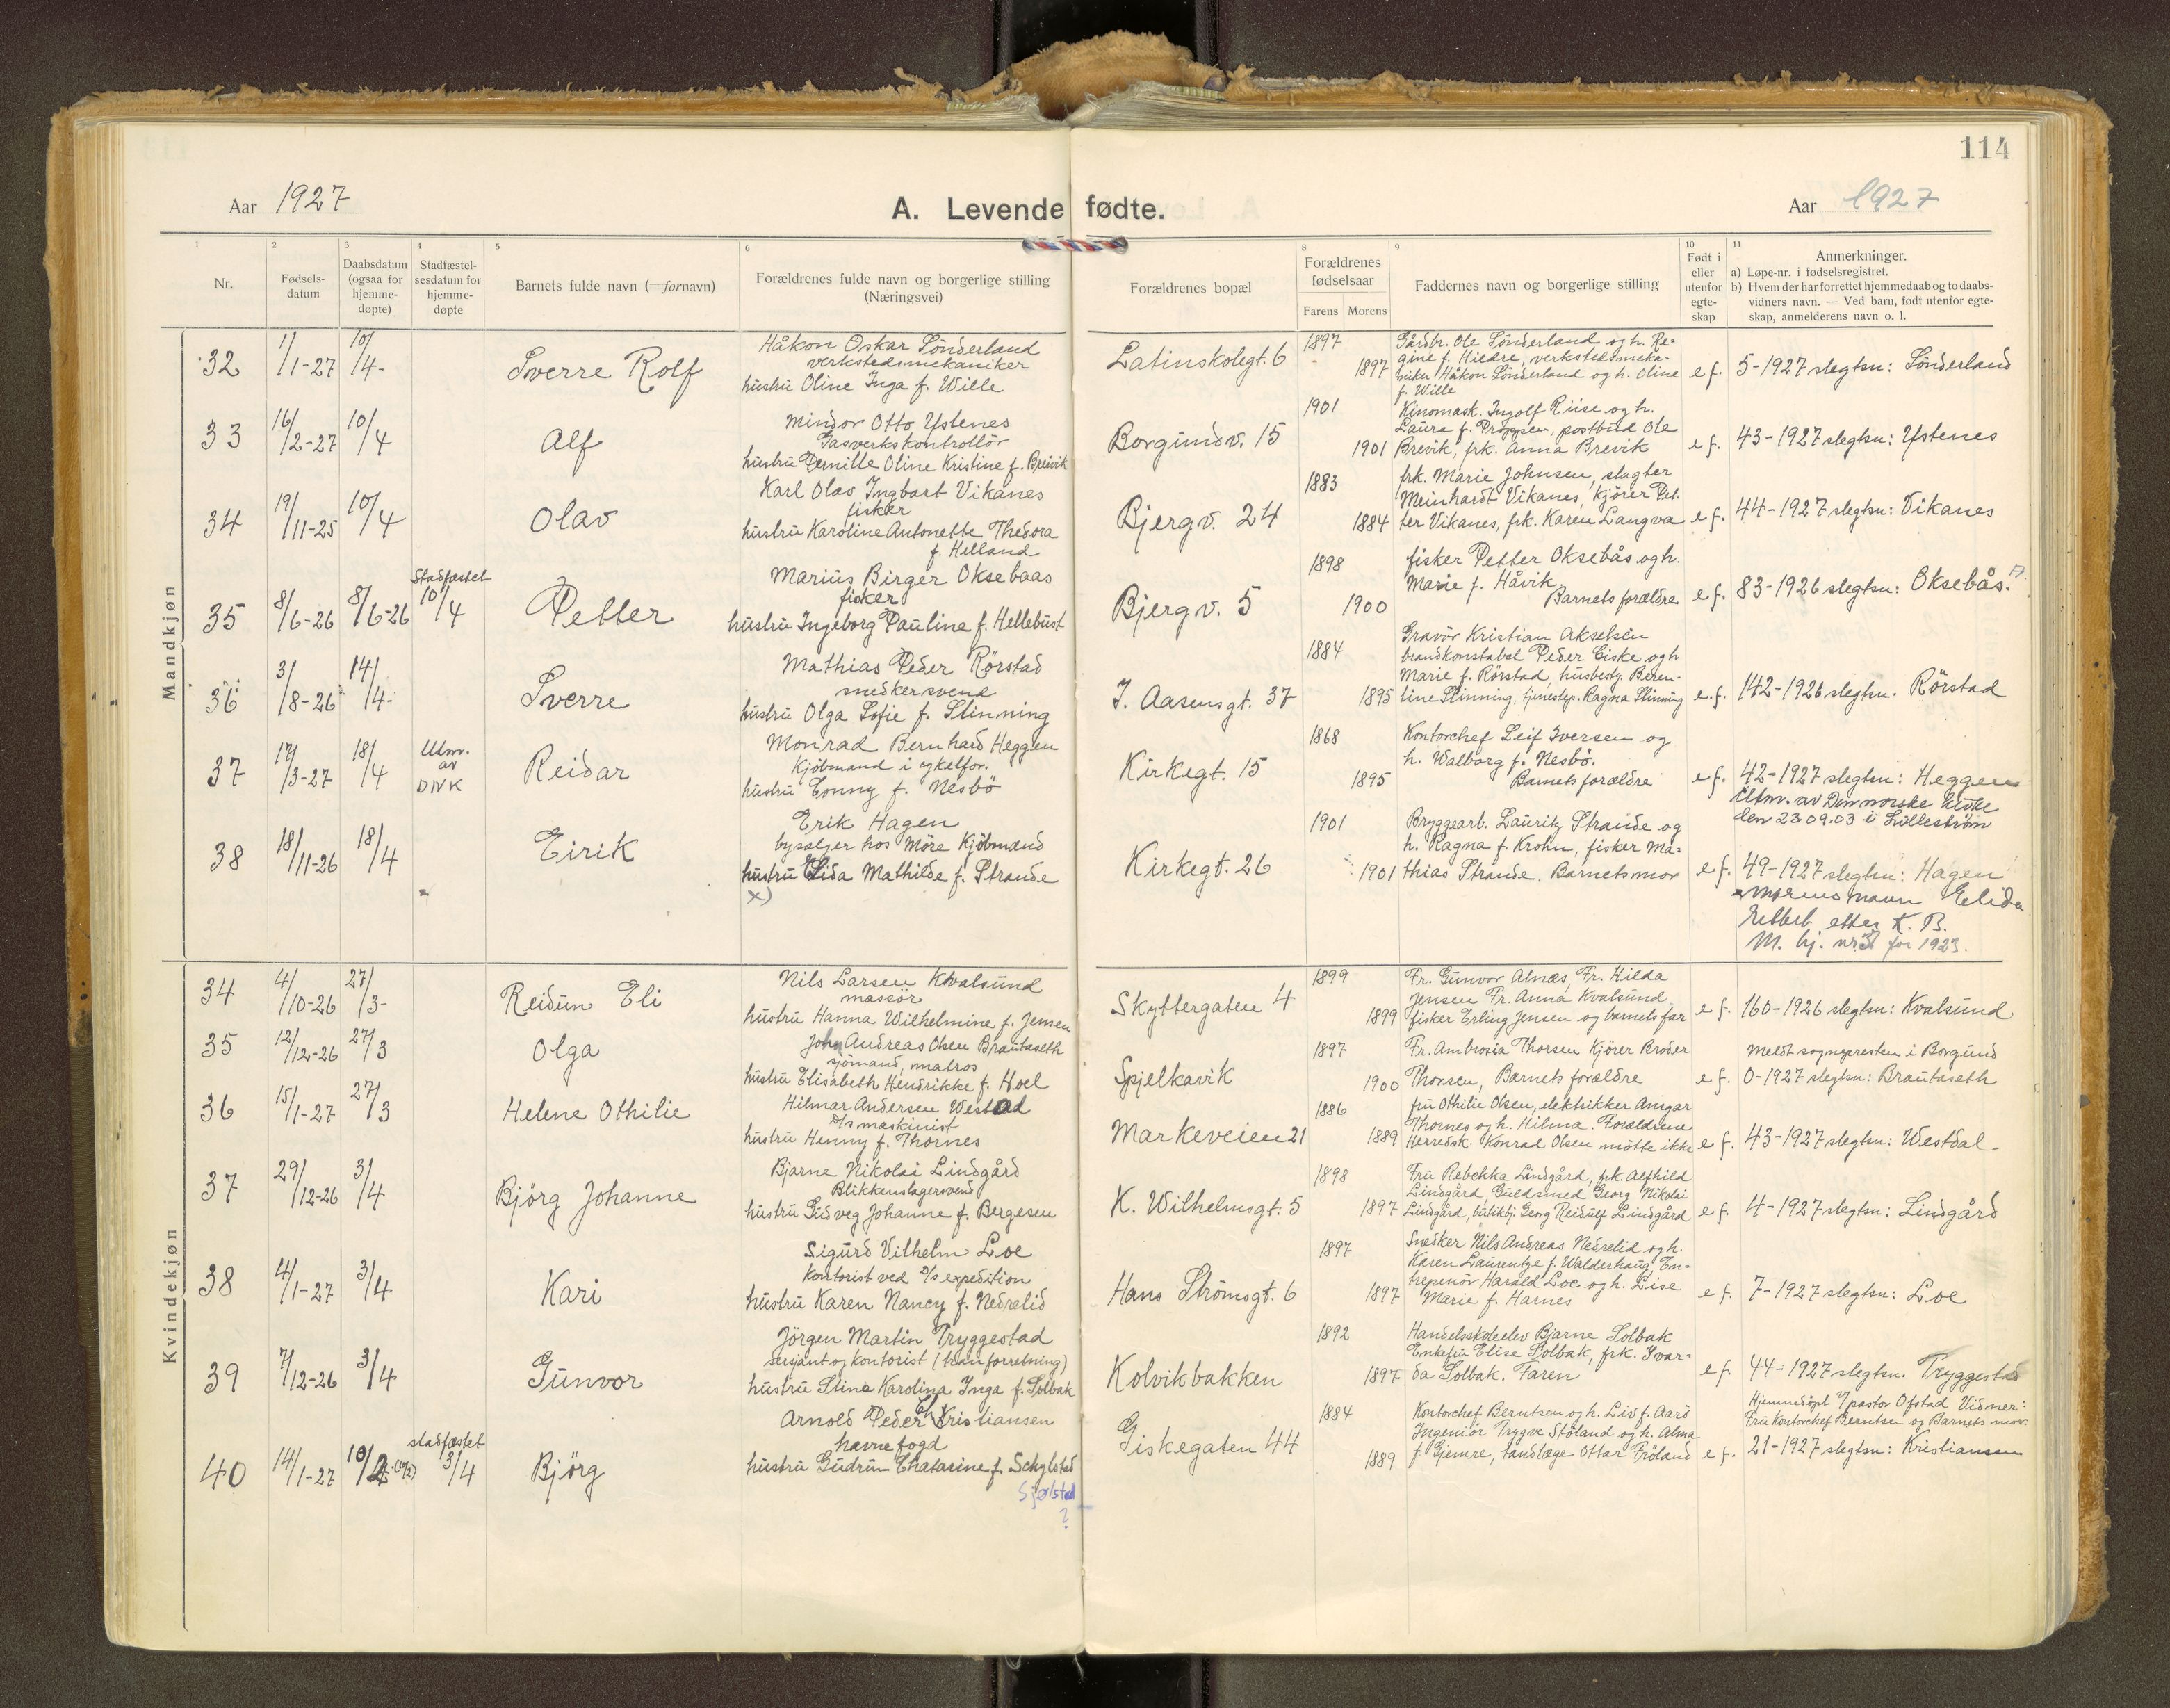 114
Aar 1927
A. Levende fødte.
Aar 1927
1
2
3
4
5
6
8
9
10
11
Nr.
Fødsels-
datum
Daabsdatum
(ogsaa for
hjemme-
døpte)
Stadfæstel-
sesdatum for
hjemme-
døpte
Barnets fulde navn (=fornavn)
Forældrenes fulde navn og borgerlige stilling
(Næringsvei)
Forældrenes bopæl
Forældrenes
fødselsaar
Farens Morens
Faddernes navn og borgerlige stilling
Født i
eller
utenfor
egte-
skap
Anmerkninger.
a) Løpe-nr. i fødselsregistret.
b) Hvem der har forrettet hjemmedaab og to daabs-
vidners navn. — Ved barn, født utenfor egte-
skap, anmelderens navn o. l.
Mandkjøn
32
1/1-27
10/4-
Sverre Rolf
Håkon Oskar Sönderland
verkstedsmekaniker
hustru Oline Inga f. Wille
Latinskolegt. 6
1897
1897
Gårdbr. Ole Sönderland og h. Re-
gine f. Hildre, verkstedsmeka-
niker Håkon Sönderland og h. Oline
f. Wille
e f.
5-1927 slegtsn: Sönderland
33
16/2-27
10/4
Alf
Mindor Otto Ystenes
Gasverkskontrollör
hustru Pernille Oline Kristine f. Breivik
Borgundv. 15
1901
1901
Kinomask. Ingolf Riise og h.
Laura f. Proppsen, postbud Ole
Brevik, frk. Anna Brevik
e f.
43-1927 slegtsn: Ystenes
34
19/11-25
10/4
Olav
Karl Olav Ingbart Vikanes
fisker
hustru Karoline Antonette Thedora
f. Helland
Bjergv. 24
1883
1884
frk. Marie Johnsen, slagter
Meinhardt Vikanes, Kjörer Pet-
ter Vikanes, frk. Karen Langva
e f.
44-1927 slegtsn: Vikanes
35
8/6-26
8/6-26
Stadfæstet
10/4
Petter
Marius Birger Oksebaas
fisker
hustru Ingeborg Pauline f. Hellebust
Bjergv. 5
1898
1900
fisker Petter Oksebås og h.
Marie f. Håvik
Barnets forældre
e f.
83-1926 slegtsn: Oksebås.
36
3/8-26
14/4-
Sverre
Mathias Peder Rörstad
snedkersvend
hustru Olga Sofie f. Slinning
I. Aasensgt. 37
1884
1895
Gravör Kristian Akselsen
brandkonstabel Peder Giske og h
Marie f. Rörstad, husbesty. Beren-
tine Slinning, tjenestep. Ragna Slinning
e.f.
142-1926 slegtsn. Rörstad
37
17/3-27
18/4
Utm.
av
DNK
Reidar
Monrad Bernhard Heggen
Kjöbmand i cykelfor.
hustru Conny f. Nesbö
Kirkegt. 15
1868
1895
Kontorchef Leif Iversen og
h. Walborg f. Nesbö.
Barnets forældre
e f.
42-1927 slegtsn: Heggen
Utm. av Den norske kirke
den 23.09.03 i Lilleström
38
18/11-26
18/4
Eirik
Erik Hagen
bysælger hos Möre Kjöbmænd
hustru Elida Mathilde f. Strande
x)
Kirkegt. 26
1901
1901
Bryggearb. Lauritz Strande og
h. Ragna f. Krohn, fisker Ma-
thias Strande. Barnets mor
e f.
49-1927 slegtsn: Hagen
x morens navn Elida
rettet etter K. B.
M. kj. nr 37 for 1923.
Kvindekjøn
34
4/10-26
27/3-
Reidun Eli
Nils Larsen Kvalsund
massör
hustru Hanna Wilhelmine f. Jensen
Skyttergaten 4
1899
1899
Fr. Gunvor Alnæs, Fr. Hilda
Jensen Fr. Anna Kvalsund
fisker Erling Jensen og barnets far
e f.
160-1926 slegtsn: Kvalsund
35
12/12-26
27/3
Olga
John Andreas Olsen Brautaseth
sjömand, matros
hustru Elisabeth Hendrikke f. Hoel
Spjelkavik
1897
1900
Fr. Ambrosia Thorsen Kjörer Broder
Thorsen, Barnets forældre
e f.
Meldt sognepresten i Borgund
0-1927 slegtsn: Brautaseth
36
15/1-27
27/3
Helene Othilie
Hilmar Andersen Westad
D/s maskinist
hustru Henny f. Thornes
Markeveien 21
1886
1889
fru Othilie Olsen, elektrikker Ansgar
Thornes og h. Hilma. Forældrene
Herredsk. Konrad Olsen mötte ikke
e f.
43-1927 slegtsn: Westdal
37
29/12-26
3/4
Björg Johanne
Bjarne Nikolai Lindgård
Blikkenslagersvend
hustru Gudveg Johanne f. Bergesen
K. Wilhelmsgt. 5
1898
1897
Fru Rebekka Lindgård, frk. Alfhild
Lindgård, Guldsmed Georg Nikolai
Lindgård, butikbj. Georg Reidulf Lindgård
e f.
4-1927 slegtsn: Lindgård
38
4/1-27
3/4
Kari
Sigurd Vilhelm Loe
Kontorist ved D/s expedition
hustru Karen Nancy f. Nedrelid
Hans Strömsgt. 6
1897
1897
Snedker Nils Andreas Nedrelid og h.
Karen Laurentze f. Walderhaug, En-
trepenör Harald Loe og h. Lise
Marie f. Harnes
e f.
7-1927 slegtsn: Loe
39
7/12-26
3/4
Gunvor
Jörgen Martin Tryggestad
serjant og kontorist (tranforretning)
hustru Stina Karolina Inga f. Solbak
Kolvikbakken
1892
1897
Handelsskoleelev Bjarne Solbak
Enkefru Elise Solbak, frk. Ivar-
da Solbak. Faren
e f.
44-1927 slegtsn. Tryggestad
40
14/1-27
10/2
stadfæstet
3/4
Bjørg
Arnold Peder Kristiansen
Ch
havnefogd
hustru Gudrun Chatarine f. Schylstad
Sjølstad
?
Giskegaten 44
1884
1889
Kontorchef Berntsen og h. Liv f. Aarö
Ingeniör Trygve Stöland og h. Alma
f. Gjemre, tandlæge Ottar Fröland
e f.
Hjemmedöpt pastor Ofstad Vidner:
Fru Kontorchef Berntsen og Barnets mor.
21-1927 slegtsn: Kristiansen